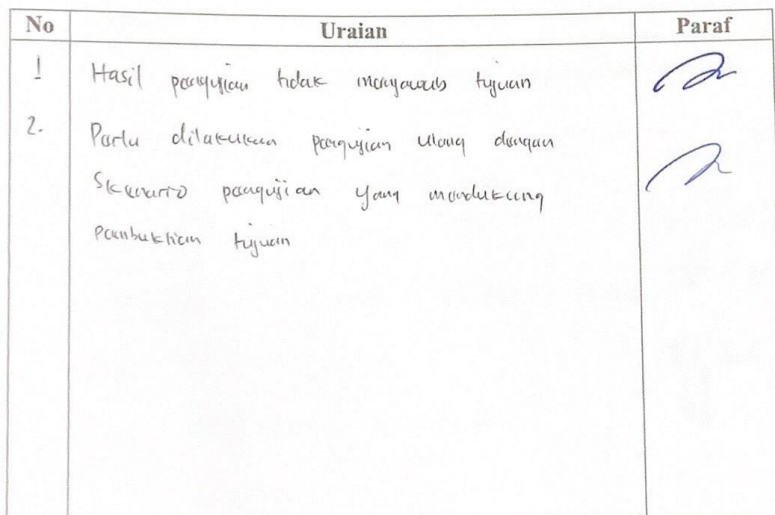 No Uraian Paraf
1 Hasil pengujian tidak menjawab tujuan
2. Perlu dilakukan pengujian ulang dengan
Skenario pengujian yang mendukung
Pembuktian tujuan